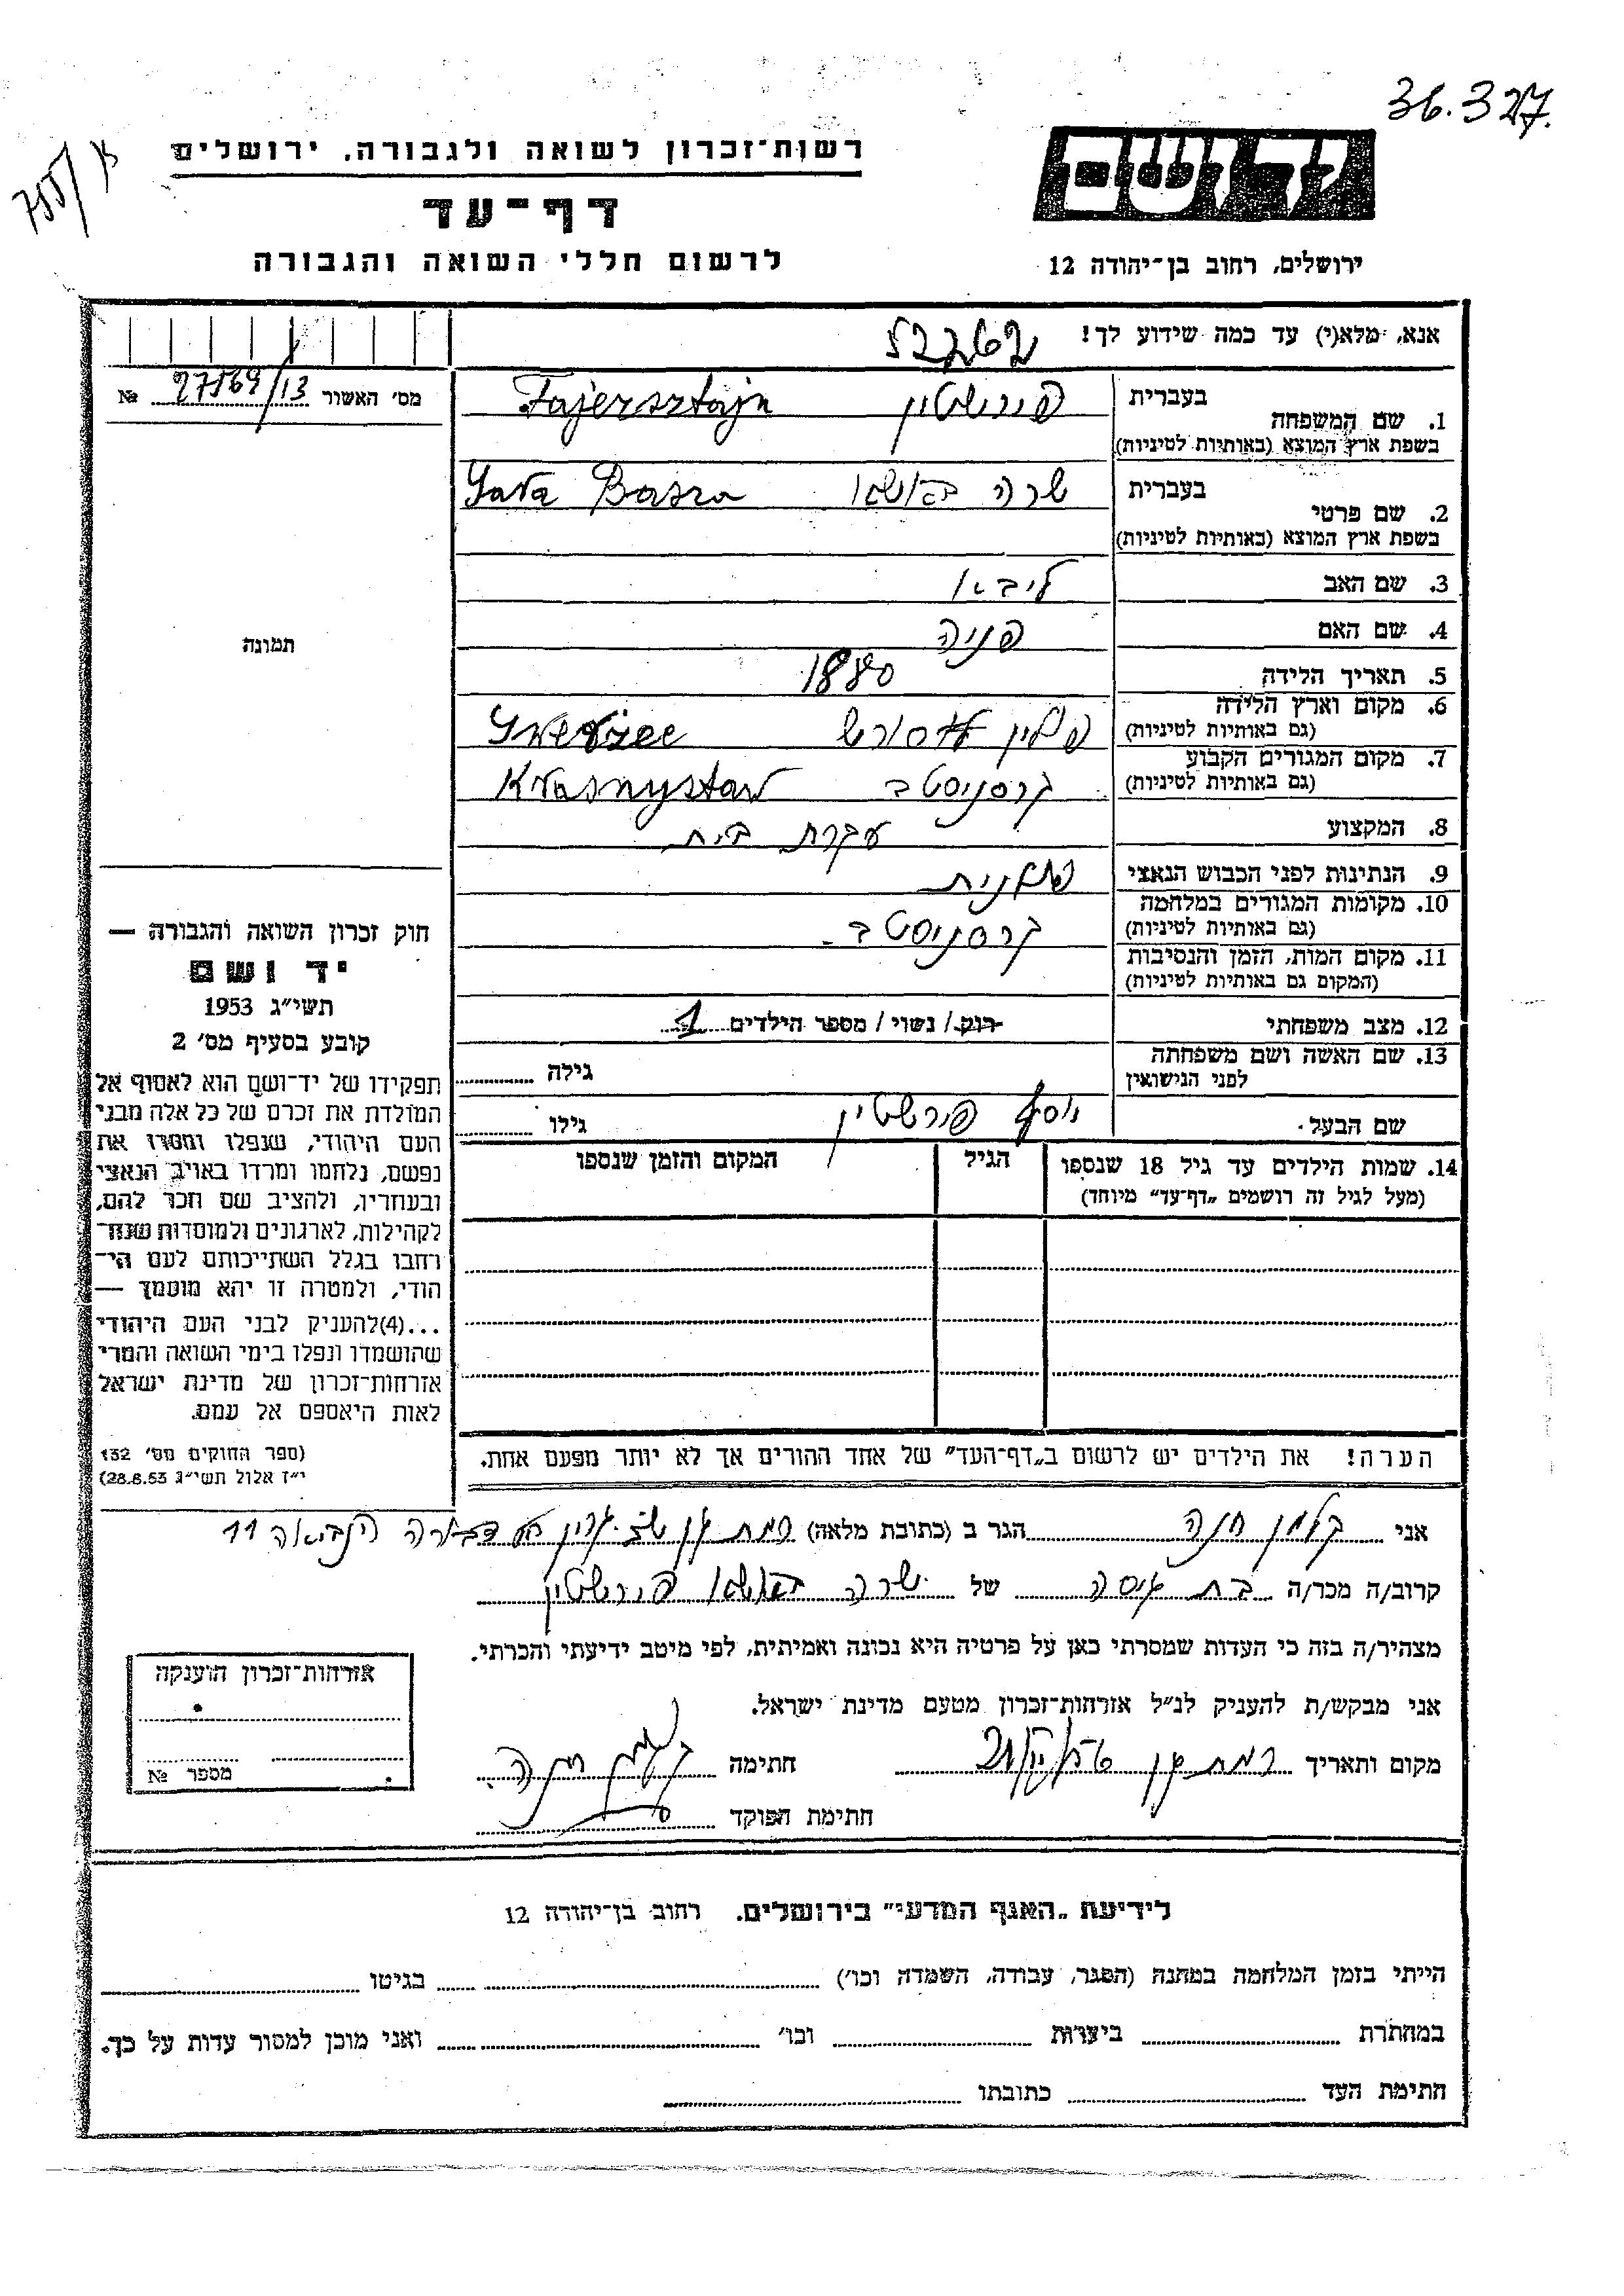 36.327.
רשות־זכרון לשואה ולגבורה, ירושלים
יד ושם
דף־עד
לרשום חללי השואה והגבורה
ירושלים, רחוב בן־יהודה 12
אנא, מלא(י) עד כמה שידוע לך!
מס׳ האשור 27569/13 №
1. שם המשפחה בעברית פירשטיין Fajersztajn
בשפת ארץ המוצא (באותיות לטיניות)
2. שם פרטי בעברית שרה באשא Sara Basza
בשפת ארץ המוצא (באותיות לטיניות)
3. שם האב ליבא
4. שם האם פניה
תמונה
5. תאריך הלידה 1880
6. מקום וארץ הלידה פולין
(גם באותיות לטיניות)
7. מקום המגורים הקבוע קרסניסטב Krasnystaw
(גם באותיות לטיניות)
8. המקצוע עקרת בית
9. הנתינות לפני הכבוש הנאצי פולנית
10. מקומות המגורים במלחמה קרסניסטב
(גם באותיות לטיניות)
11. מקום המות, הזמן והנסיבות
(המקום גם באותיות לטיניות)
12. מצב משפחתי רוק / נשוי / מספר הילדים 1
13. שם האשה ושם משפחתה גילה
לפני הנישואין
שם הבעל יוסף פירשטיין גילו
14. שמות הילדים עד גיל 18 שנספו הגיל המקום והזמן שנספו
(מעל לגיל זה רושמים „דף־עד” מיוחד)
חוק זכרון השואה והגבורה —
יד ושם
תשי״ג 1953
קובע בסעיף מס׳ 2
תפקידו של יד־ושם הוא לאסוף אל
המולדת את זכרם של כל אלה מבני
העם היהודי, שנפלו ומסרו את
נפשם, נלחמו ומרדו באויב הנאצי
ובעוזריו, ולהציב שם וזכר להם,
לקהילות, לארגונים ולמוסדות שנח־
רבו בגלל השתייכותם לעם הי־
הודי, ולמטרה זו יהא מוסמך —
...(4)להעניק לבני העם היהודי
שהושמדו ונפלו בימי השואה והמרי
אזרחות־זכרון של מדינת ישראל
לאות היאספם אל עמם.
(ספר החוקים מס׳ 132
י״ז אלול תשי״ג 28.8.53)
הערה! את הילדים יש לרשום ב„דף־העד” של אחד ההורים אך לא יותר מפעם אחת.
אני קלמן חנה הגר ב (כתובת מלאה) רמת גן דבורה הנביאה 11
קרוב/ה מכר/ה בת גיסה של שרה באשא פירשטיין
מצהיר/ה בזה כי העדות שמסרתי כאן על פרטיה היא נכונה ואמיתית, לפי מיטב ידיעתי והכרתי.
אני מבקש/ת להעניק לנ״ל אזרחות־זכרון מטעם מדינת ישראל.
מקום ותאריך רמת גן חתימה קלמן חנה
חתימת הפוקד
אזרחות־זכרון הוענקה
מספר №
לידיעת „האגף המדעי” בירושלים. רחוב בן־יהודה 12
הייתי בזמן המלחמה במחנה (הסגר, עבודה, השמדה וכו׳) בגיטו
במחתרת ביערות וכו׳ ואני מוכן למסור עדות על כך.
חתימת העד כתובתו